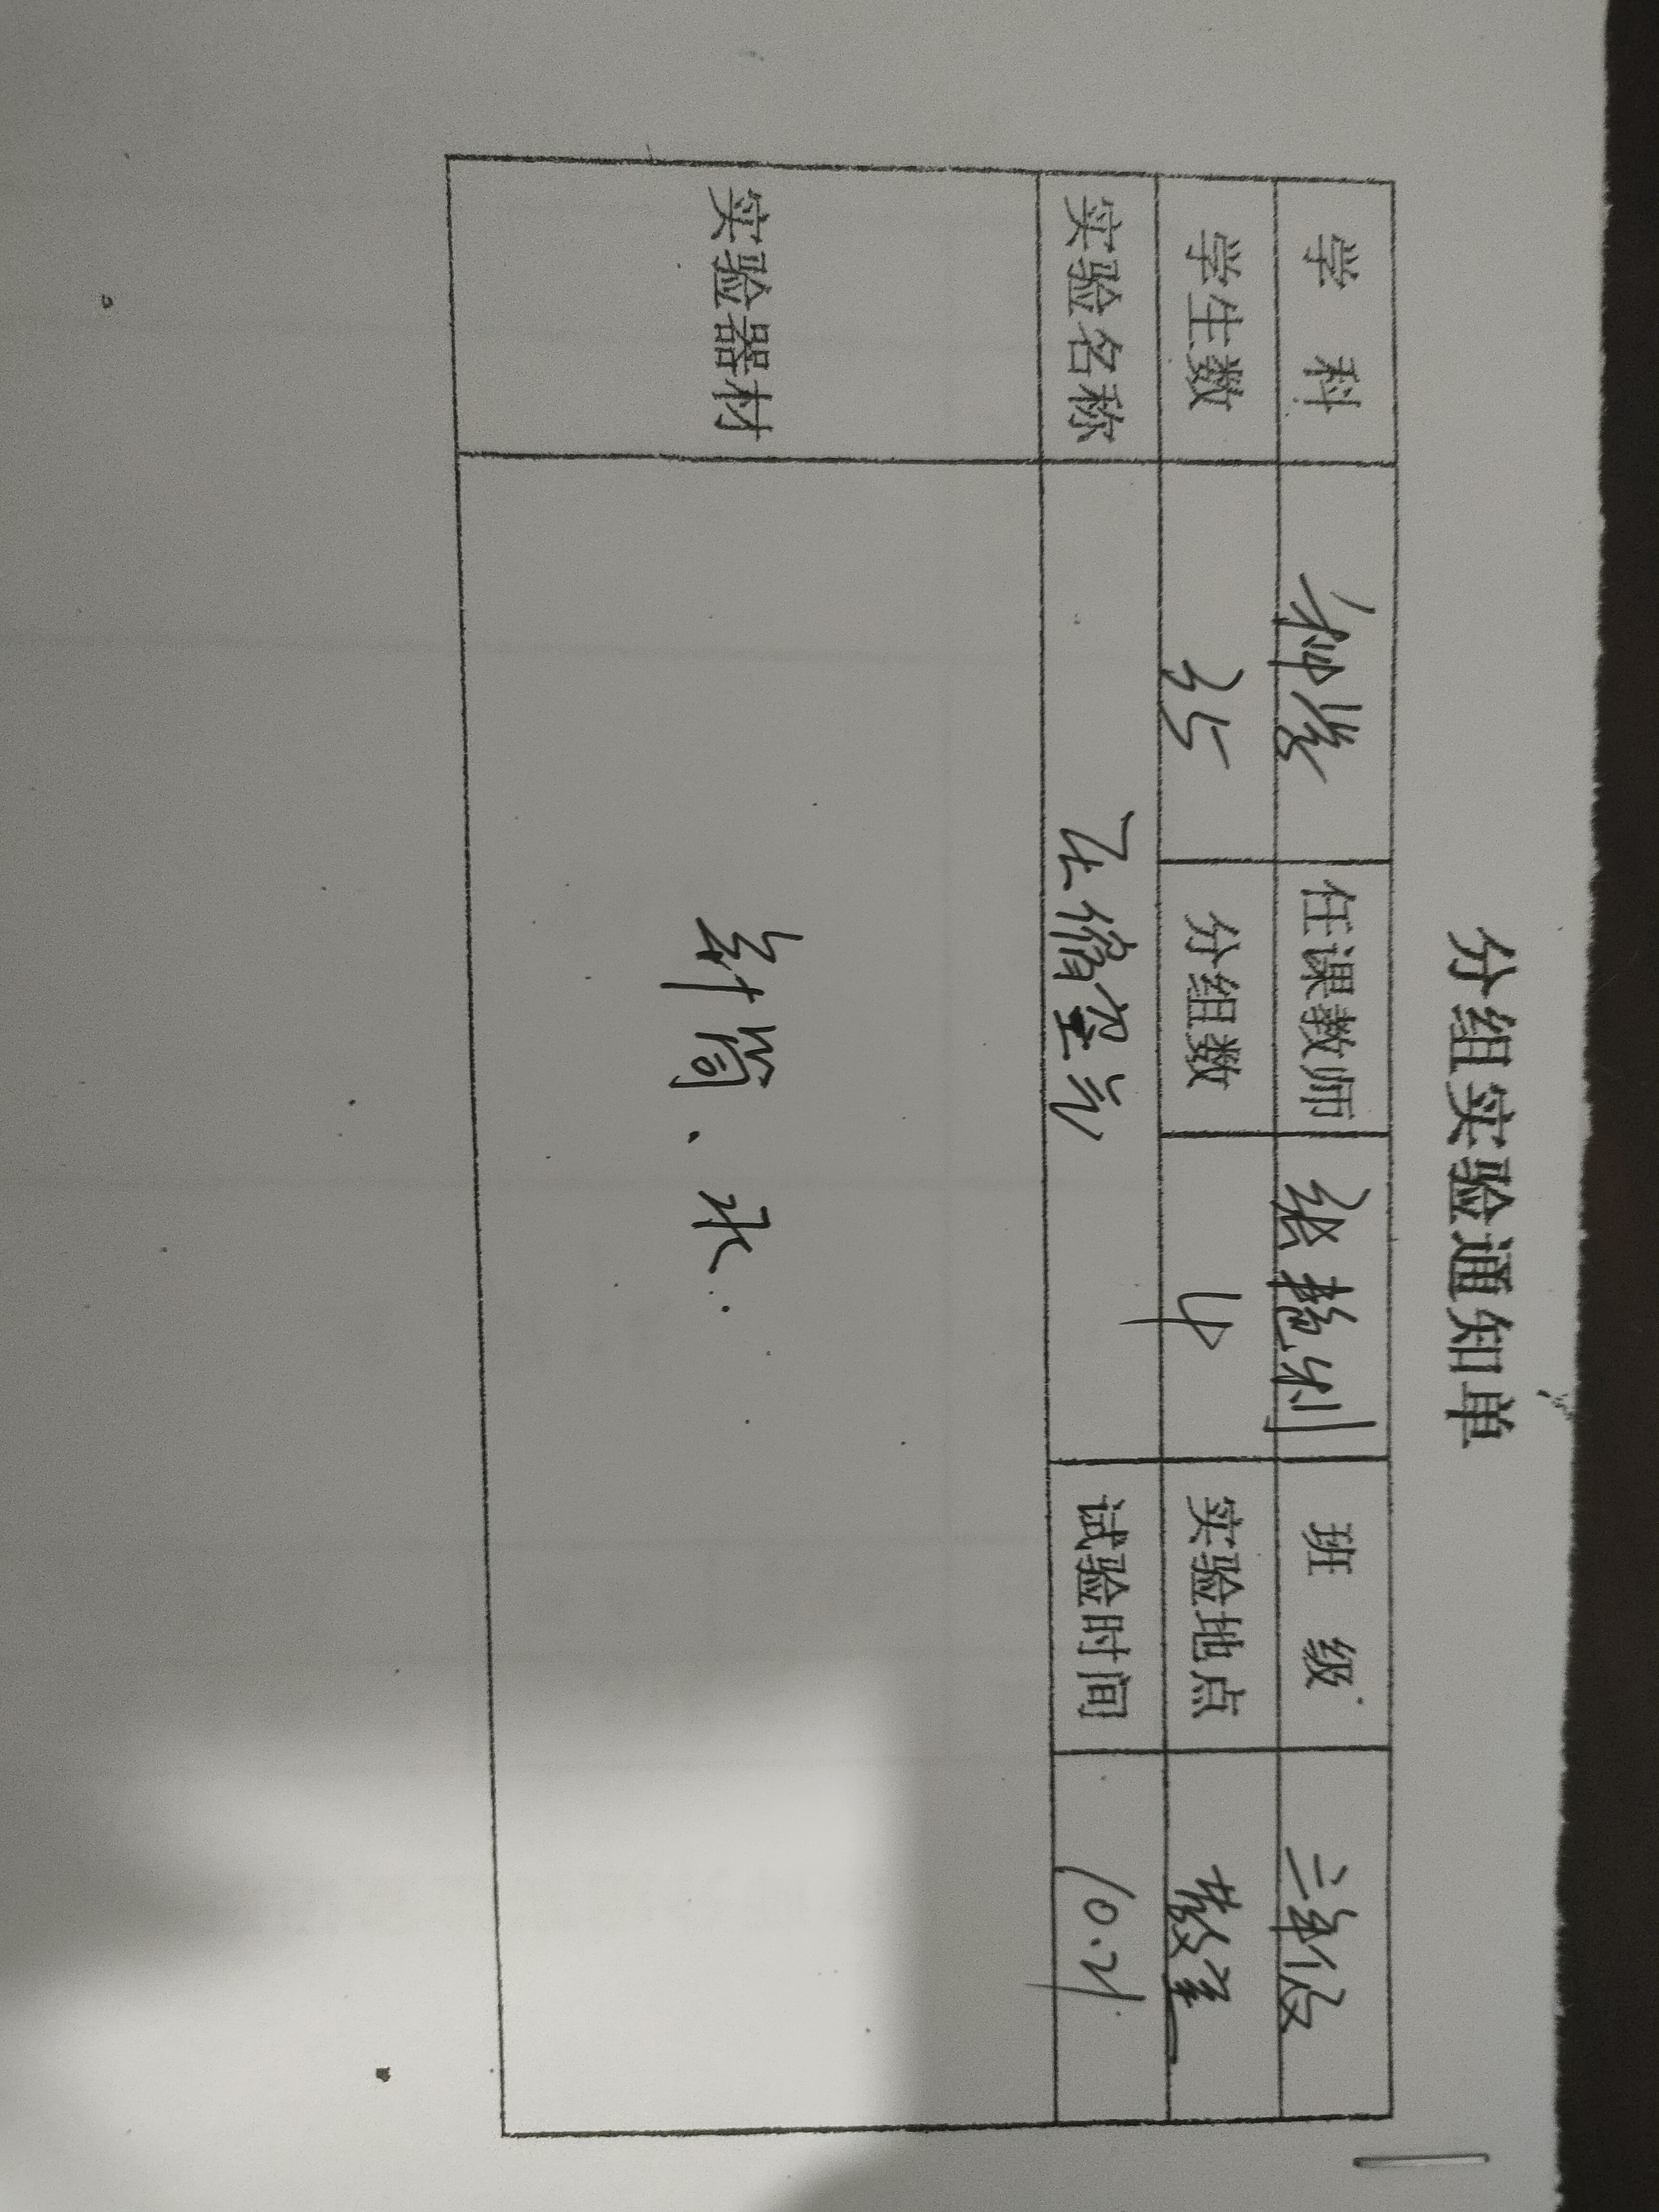 分组实验通知单
学 科 科学 任课教师 张艳利 班 级 三年级
学生数 35 分组数 4 实验地点 教室
实验名称 压缩空气 试验时间 10.21
实验器材 针筒、水.